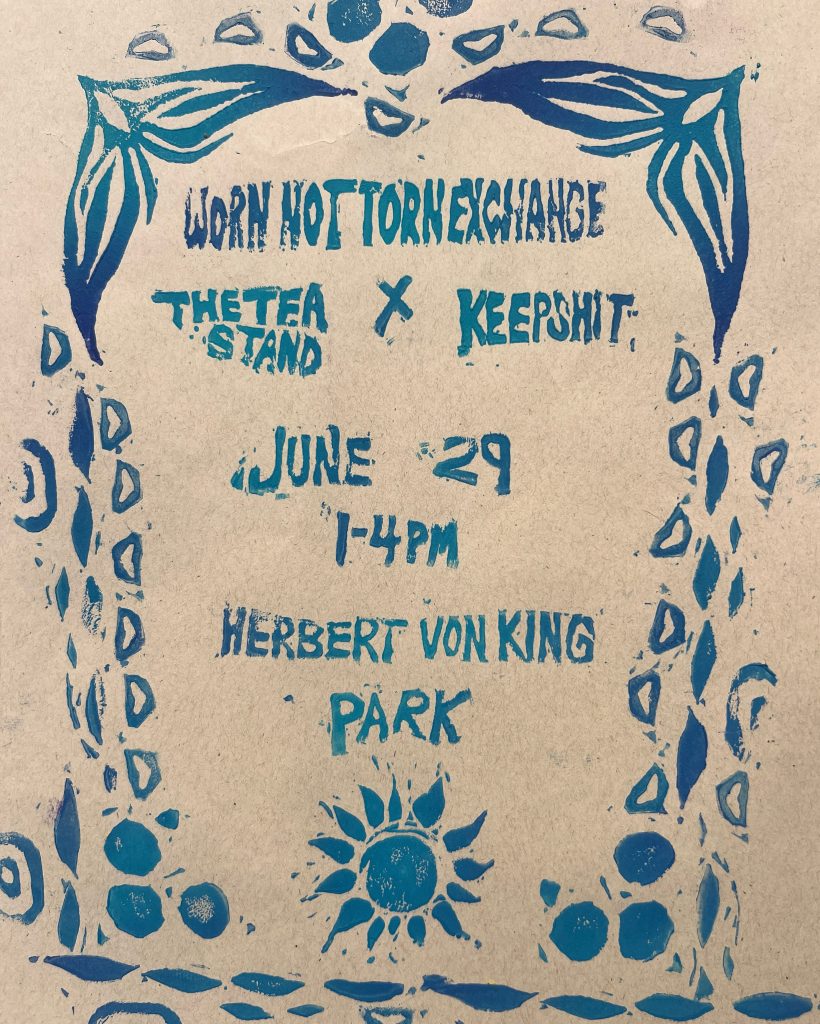 WORN NOT TORN EXCHANGE
THE TEA STAND X KEEPSHIT
JUNE 29
1-4PM
HERBERT VON KING
PARK